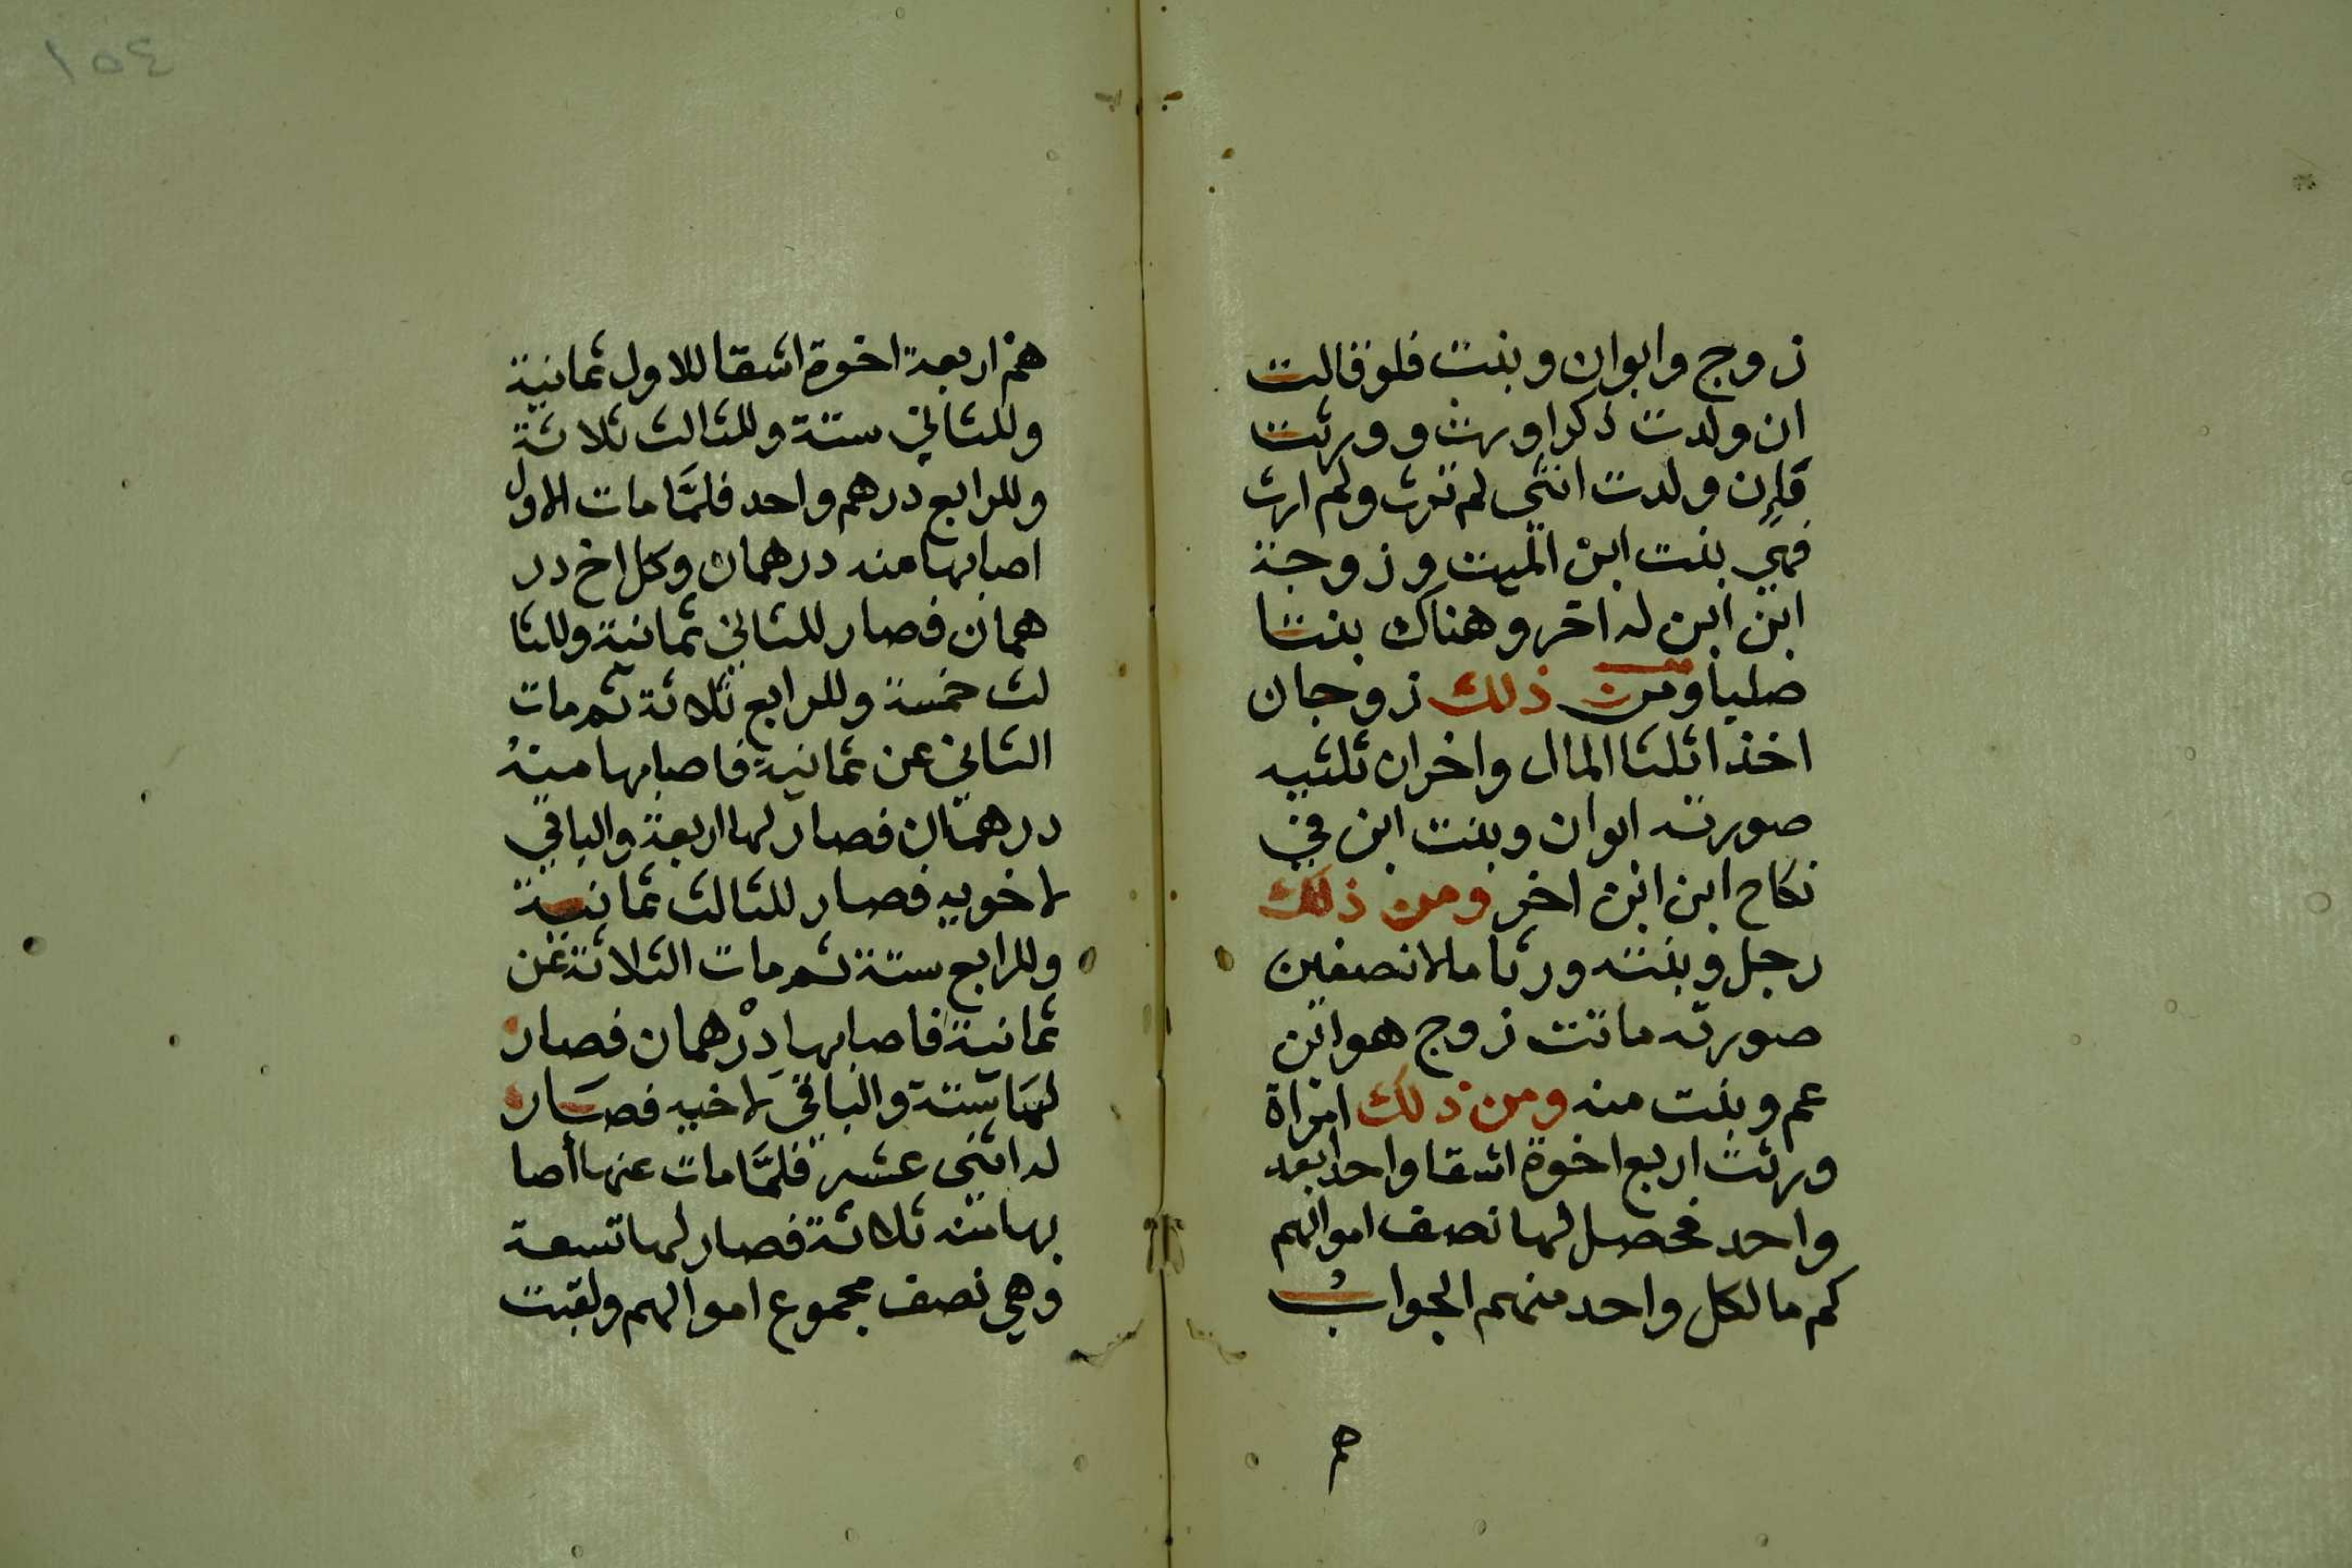 زوج وابوان وبنت فلو قالت
ان ولدت ذكرا ورث وورثت
فإن ولدت انثى لم ترث ولم ارث
فهي بنت ابن الميت وزوجة
ابن ابن له اخر وهناك بنتا
صلبا ومن ذلك زوجان
اخذا ثلثا المال واخران ثلثيه
صورته ابوان وبنت ابن في
نكاح ابن ابن اخر ومن ذلك
رجل وبنته ورثا مالا نصفين
صورته ماتت زوج هو ابن
عم وبنت منه ومن ذلك امراة
ورثت اربع اخوة اشقا واحد ابعد
واحد فحصل لها نصف اموالهم
كم مال كل واحد منهم الجواب
هم
هم اربعة اخوة اشقا للاول ثمانية
وللثاني ستة وللثالث ثلاثة
وللرابع درهم واحد فلمَّا مات الاول
اصابها منه درهمان وكل اخ در
همان فصار للثاني ثمانية وللثا
لث خمسة وللرابع ثلاثة ثم مات
الثاني عن ثمانية فاصابها منه
درهمان فصار لها اربعة والباقي
لاخويه فصار للثالث ثمانية
وللرابع ستة ثم مات الثلاثة عن
ثمانية فاصابها درْهمان فصار
لها ستة والباقي لاخيه فصار
له اثنى عشر فلمَّا مات عنها أصا
بها منه ثلاثة فصار لها تسعة
وهي نصف مجموع اموالهم ولقبت
١٥٤